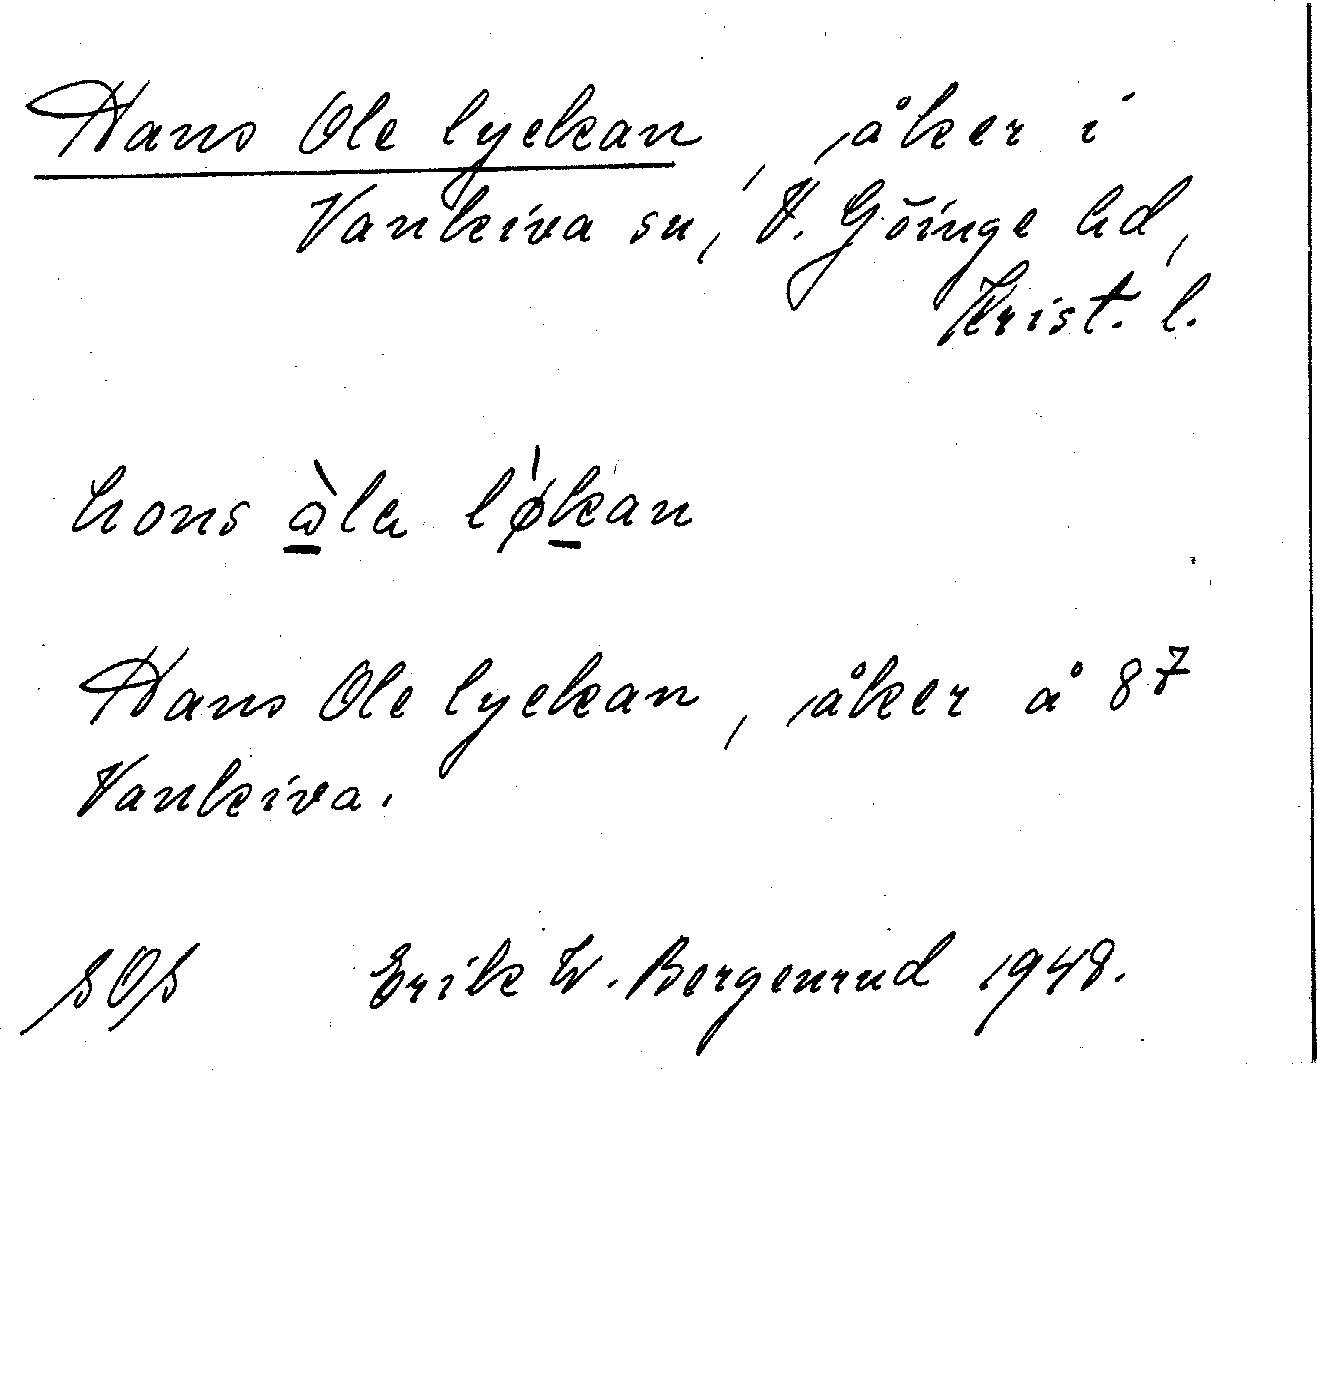 Hans Ole lyckan, åker i
Vankiva sn, V. Göinge hd,
Krist. l.
hons l
Hans Ole lyckan, åker å 8⁷
Vankiva.
SOS Erik W. Bergenrud 1948.